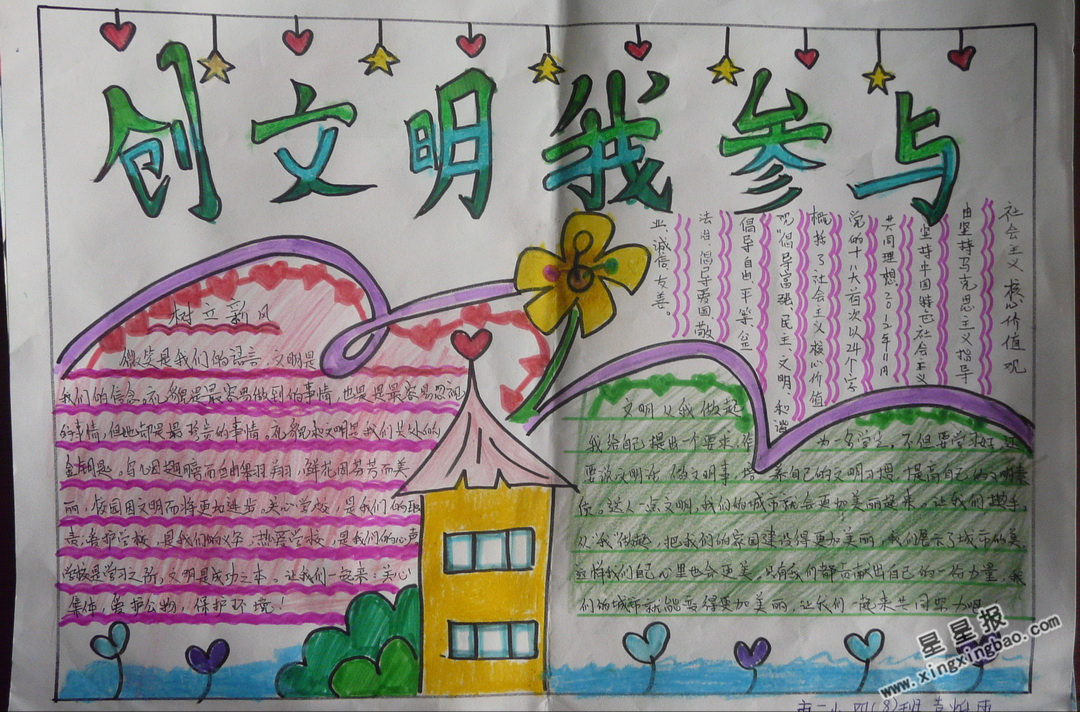 创文明我参与
社会主义核心价值观
由坚持马克思主义指导
坚持中国特色社会主义
共同理想。2012年11月
党的十八大首次以24个字
概括了社会主义核心价值
观“倡导富强、民主、文明、和谐
倡导自由、平等、公
法治、倡导爱国、敬
业、诚信、友善。
树立新风
微笑是我们的语言,文明是
我们的信念。礼貌是最容易做到的事情,也是最容易忽视
的事情,但她却是最珍贵的事情。礼貌和文明是我们共处的
金钥匙。鸟儿因翅膀而自由翱翔,鲜花因芬芳而美
丽,校园因文明而将更加进步。关心学校,是我们的
责;爱护学校,是我们的义务;热爱学校,是我们的心声
学校是学习之所,文明是成功之本。让我们一起来:关心
集体,爱护公物,保护环境!
文明从我做起
我给自己提出一个要求,作为一名学生,不但要学习好,还
要说文明话,做文明事,培养自己的文明习惯,提高自己的文明素
质。送人一点文明,我们的城市就会更加美丽起来。让我们携手,
从我做起,把我们的家园建设得更加美丽,我们展示了城市的美,
这样我们自己心里也会更美,只有我们都贡献出自己的一份力量,我
们的城市就能变得更加美丽,让我们一起来共同努力吧
星星报
www.xingxingbao.com
市二小四(8)班